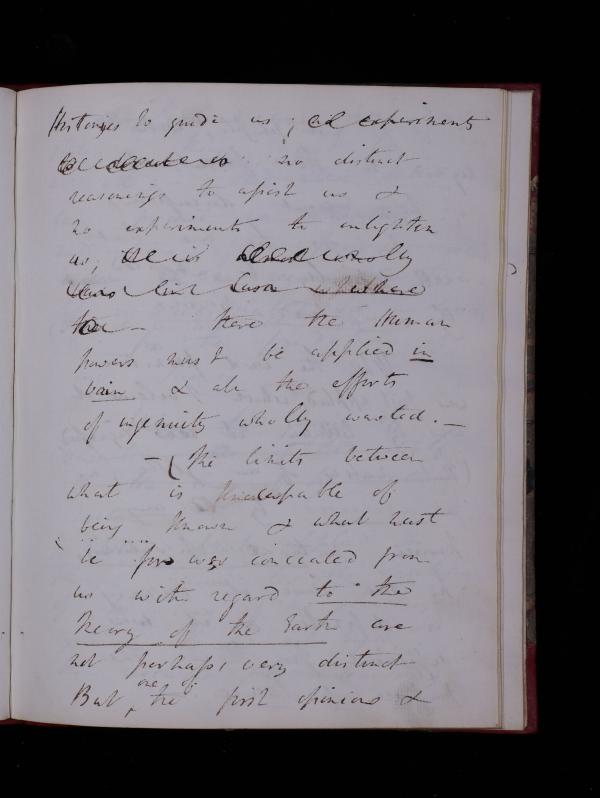 Histories to guide us; no experiments
no distinct
reasonings to assist us &
no experiments to enlighten
us, wholly
– Here the Human
powers must be applied in
vain & all the efforts
of ingenuity wholly wasted. —
– (The limits between
what is capable of
being known & what must
be for ever concealed from
us with regard to the
Theory of the Earth are
not perhaps very distinct
But one of the first opinions &